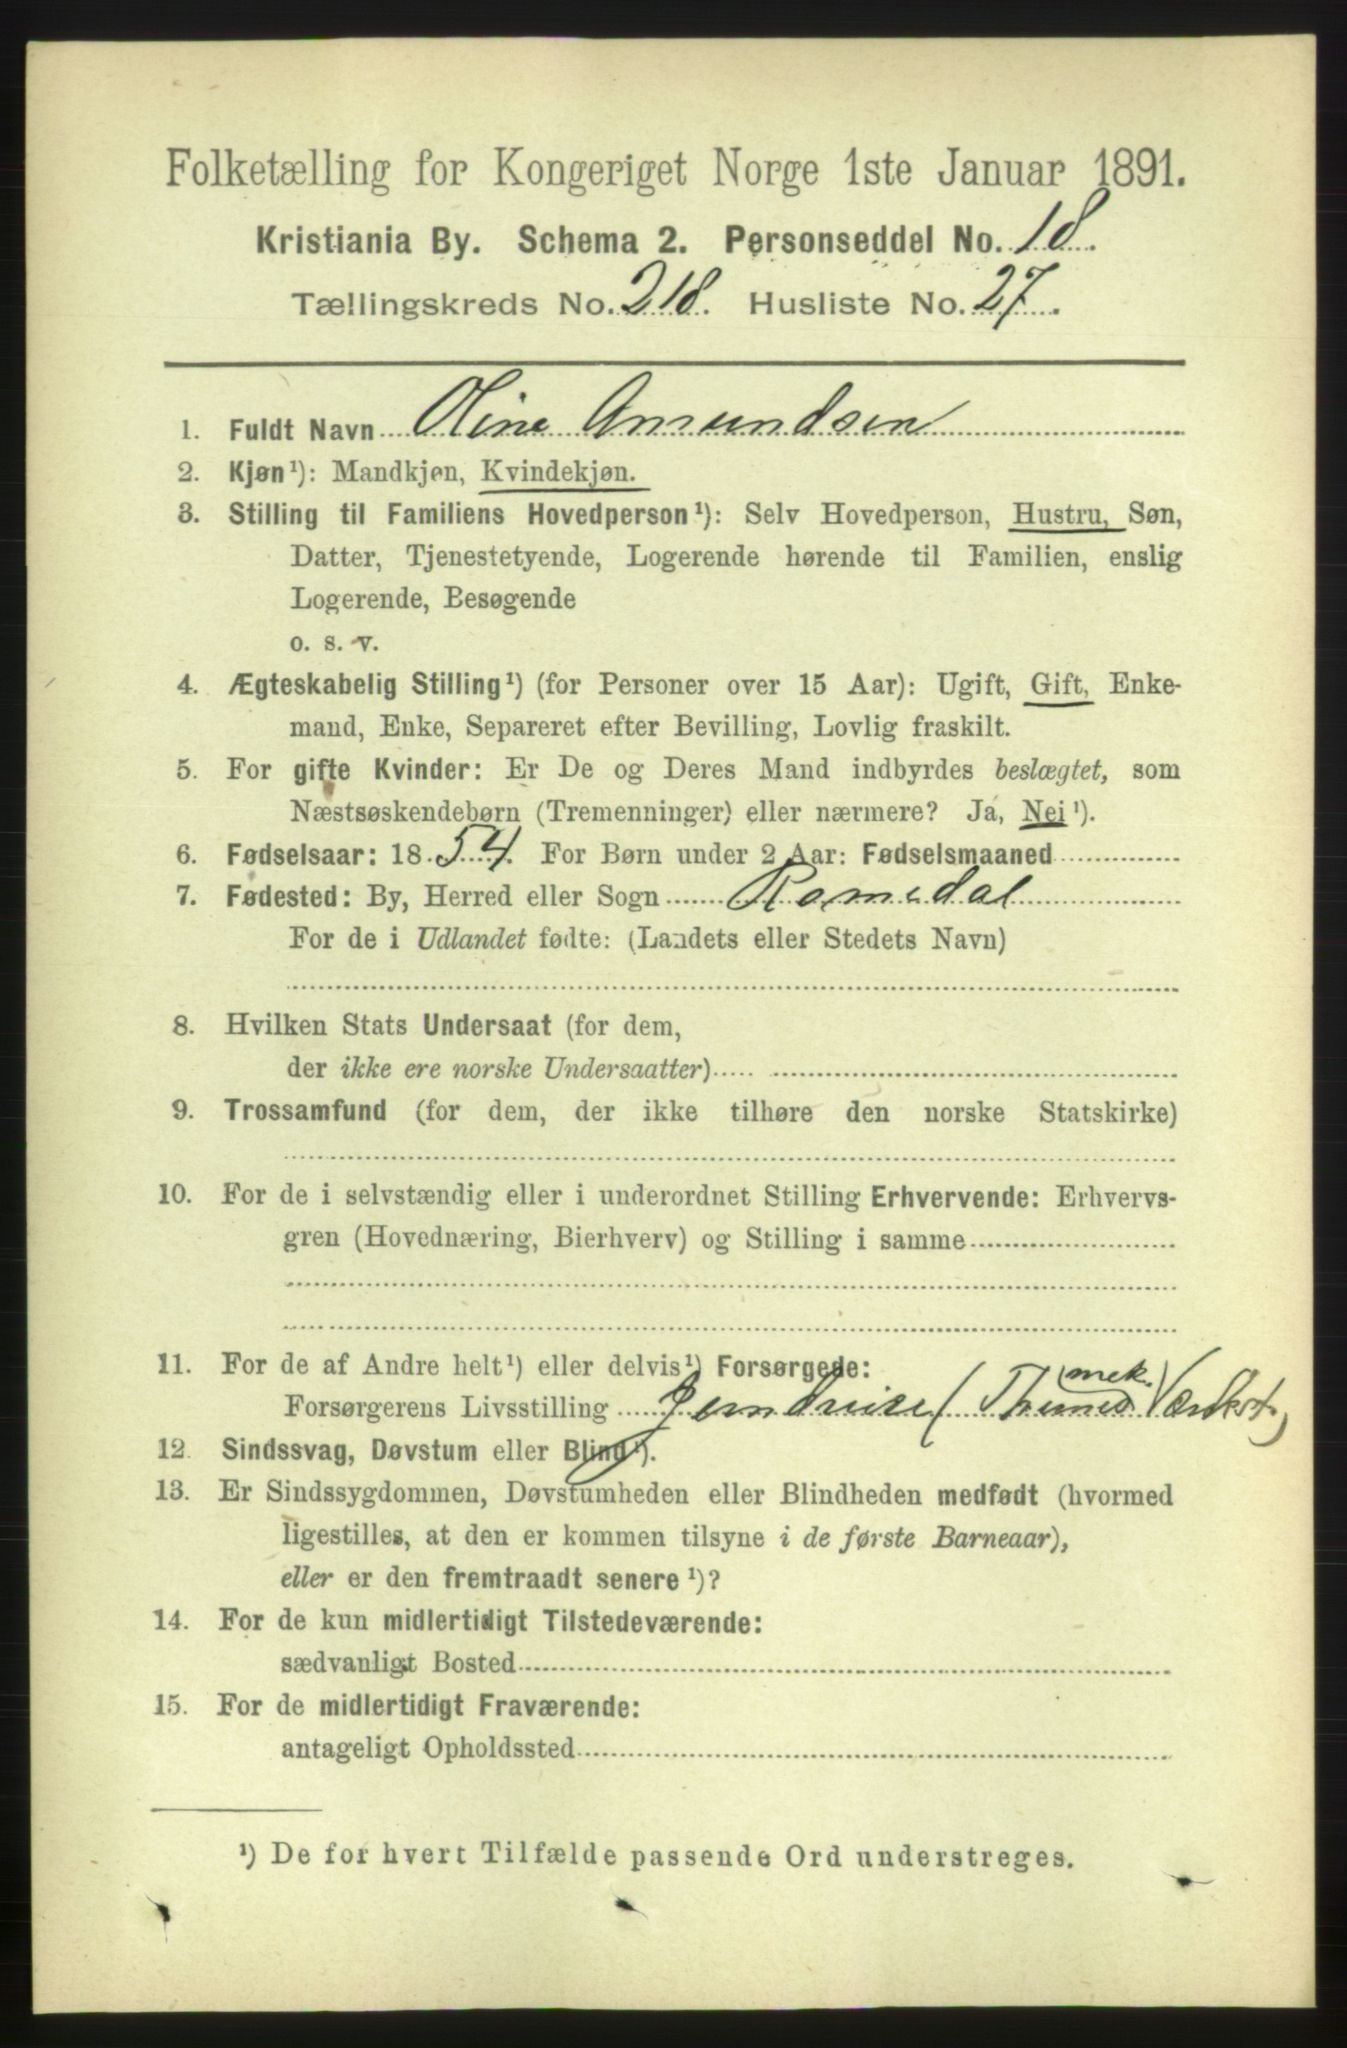 Folketælling for Kongeriget Norge 1ste Januar 1891.
Kristiania By. Schema 2. Personseddel No. 18.
Tællingskreds No. 218. Husliste No. 27.
1. Fuldt Navn Oline Amundsen
2. Kjøn¹): Mandkjøn, Kvindekjøn.
3. Stilling til Familiens Hovedperson¹): Selv Hovedperson, Hustru, Søn,
Datter, Tjenestetyende, Logerende hørende til Familien, enslig
Logerende, Besøgende
o. s. v.
4. Ægteskabelig Stilling¹) (for Personer over 15 Aar): Ugift, Gift, Enke-
mand, Enke, Separeret efter Bevilling, Lovlig fraskilt.
5. For gifte Kvinder: Er De og Deres Mand indbyrdes beslægtet, som
Næstsøskendebørn (Tremenninger) eller nærmere? Ja, Nei¹).
6. Fødselsaar: 1854. For Børn under 2 Aar: Fødselsmaaned
7. Fødested: By, Herred eller Sogn Romedal
For de i Udlandet fødte: (Landets eller Stedets Navn)
8. Hvilken Stats Undersaat (for dem,
der ikke ere norske Undersaatter)
9. Trossamfund (for dem, der ikke tilhøre den norske Statskirke)
10. For de i selvstændig eller i underordnet Stilling Erhvervende: Erhvervs-
gren (Hovednæring, Bierhverv) og Stilling i samme
11. For de af Andre helt¹) eller delvis¹) Forsørgede:
mek.
Forsørgerens Livsstilling Jerndreier (Thunes Værkst.)
12. Sindssvag, Døvstum eller Blind¹).
13. Er Sindssygdommen, Døvstumheden eller Blindheden medfødt (hvormed
ligestilles, at den er kommen tilsyne i de første Barneaar),
eller er den fremtraadt senere¹)?
14. For de kun midlertidigt Tilstedeværende:
sædvanligt Bosted
15. For de midlertidigt Fraværende:
antageligt Opholdssted
¹) De for hvert Tilfælde passende Ord understreges.